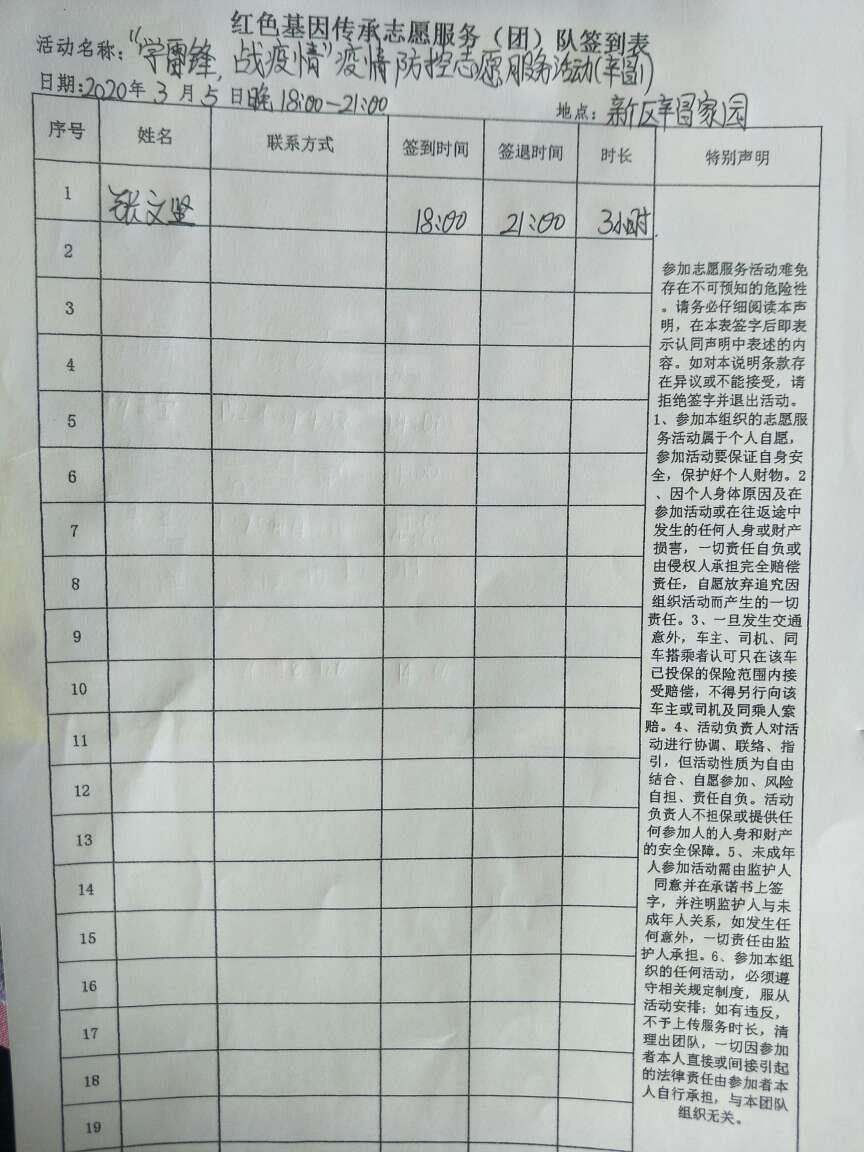 红色基因传承志愿服务（团）队签到表
活动名称：“学雷锋，战疫情”疫情防控志愿服务活动(辛置1)
日期:2020年 3 月 5 日晚 18:00—21:00
地点：新区辛置家园
序号 姓名 联系方式 签到时间 签退时间 时长 特别声明
1 张文坚 18:00 21:00 3小时.
2
3
4
5
6
7
8
9
10
11
12
13
14
15
16
17
18
19
参加志愿服务活动难免
存在不可预知的危险性
。请务必仔细阅读本声
明，在本表签字后即表
示认同声明中表述的内
容。如对本说明条款存
在异议或不能接受，请
拒绝签字并退出活动。
1、参加本组织的志愿服
务活动属于个人自愿，
参加活动要保证自身安
全，保护好个人财物。2
、因个人身体原因及在
参加活动或在往返途中
发生的任何人身或财产
损害，一切责任自负或
由侵权人承担完全赔偿
责任，自愿放弃追究因
组织活动而产生的一切
责任。3、一旦发生交通
意外，车主、司机、同
车搭乘者认可只在该车
已投保的保险范围内接
受赔偿，不得另行向该
车主或司机及同乘人索
赔。4、活动负责人对活
动进行协调、联络、指
引，但活动性质为自由
结合、自愿参加、风险
自担、责任自负。活动
负责人不担保或提供任
何参加人的人身和财产
的安全保障。5、未成年
人参加活动需由监护人
同意并在承诺书上签
字，并注明监护人与未
成年人关系，如发生任
何意外，一切责任由监
护人承担。6、参加本组
织的任何活动，必须遵
守相关规定制度，服从
活动安排；如有违反，
不予上传服务时长，清
理出团队，一切因参加
者本人直接或间接引起
的法律责任由参加者本
人自行承担，与本团队
组织无关。